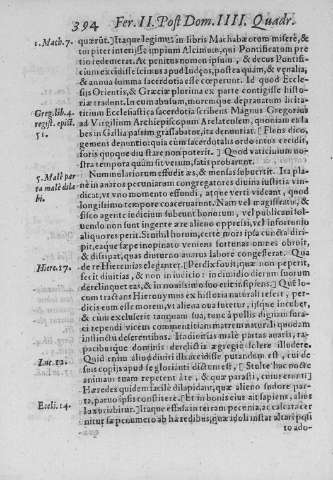 394 Fer. II. Post Dom. IIII. Quadr.
1. Mach. 7.
quærūt.] Itaque legimus in libris Machabæorum miserè, &
turpiter interisse impium Alcimum, qui Pontificatum pre
tio redemerat. Ac penitus nomen ipsum, & decus Pontifi-
cium excidisse citius apud Iudęos, postea quàm, & venalia,
& annua summa sacerdotia esse cœperūt. Id quod Eccle-
siis Orientis, & Græciæ plorima ex parte contigisse histo-
riæ tradent. In cum abusum, moremque depravatum licita-
Greg. lib. 4.
titium Ecclesiastica sacerdotia scribens Magnus Gregorius
regist. epist.
ad Virgilium Archiepiscopum Arelatensem, quoniam ea la
51.
bes in Gallia passim grassabatur, ita denuntiat. [Flens dico,
gemens denuntio: quia cùm sacerdotalis ordo intus cecidit,
foris quoque diu stare non poterit.] Quod vaticinium no-
stra tempora quàm sit verum, satis probarunt.
5. Malè par
Nummulariorum effudit æs, & mensas subvertit. Ita pla
ta malè dila
nè in auaros pecuniarum congregatores divina iustitia vin-
bi.
dicat, vt vno momento effundi, atque verti videant, quod
longissimo tempore coaceruarunt. Nam vel magistratu, &
fisco agente indicium subeunt bonorum, vel publicani sol-
vendo non sunt ingente ære alieno oppressi, vel infortunio
aliquo res perit. Si nihil horum, certè mors ipsa cuncta diri-
pit, eaque sæpe inopinato veniens fortunas omnes obruit,
& dissipat, quas diuturno avarus labore congesserat. Qua
Hiere. 17.
de re Hieremias elegāter. [Perdix fouit, quæ non peperit,
fecit divitias, & non in iudicio: in dimidio dierum suorum
derelinquet eas, & in novissimo suo erit insipiens.] Quē lo-
cum tractans Hieronymus ex historia naturali refert, per-
dicis eum esse morem, vt aliena ova furetur, ipsaque incubet,
& cum excluserit tanquam sua, tunc à pullis dignam fura-
ci rependi vicem commentitiam matrem naturali quodam
instinctu deserentibus. Itodivitias malè partas avaris, ra-
pacibusque dominis derelictis ægregiè solere illudere.
Luc. 12.
Quid enim aliud diviti illi accidisse putandum est, cui de
suis copiis apud se gloriatī dictum est, [Stulte hac nocte
animam tuam repetent à te, & quæ parasti, cuius erunt?]
Hæredes quidem facilè dilapidant, quæ alieno sudore par-
Eccli. 14.
ta, parvo ipsis constitere. [Et in bonis eius ait sapiens, alius
luxuriabitur.] Itaque effusa in terram pecunia, ac calcata cer
nitur sæpenumero ab hæredibus, quæ idoli instar altari posi
to ado-